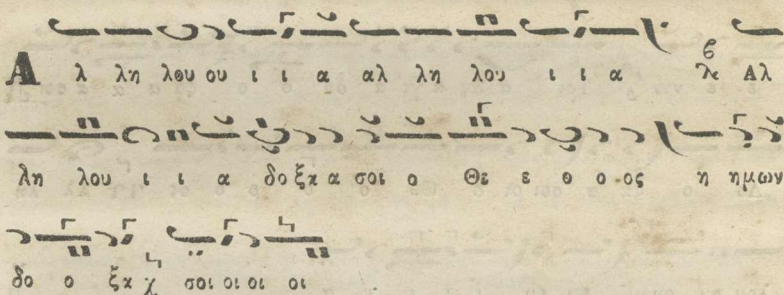 Α λ λη λου ου ι ι α αλ λη λου ι ι α Αλ
λη λου ι ι α δο ξα α σοι ο Θε ε θ ο ος η ημων
δο ο ξα σοι οι οι οι